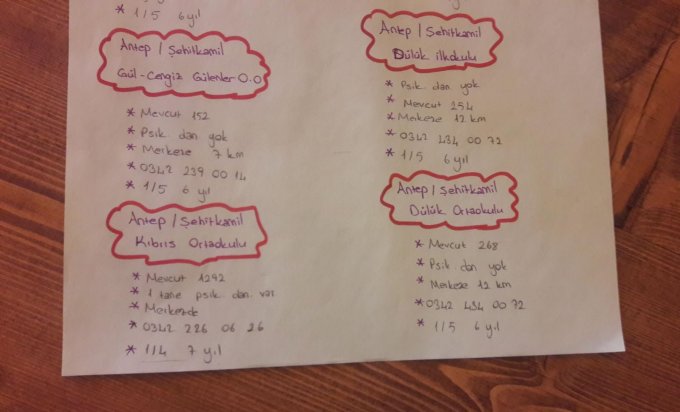 * 1/5 6 yıl
Antep / Şehitkamil
Gül-Cengiz Gülenler O.O
* Mevcut 152
* Psik. dan yok
* Merkeze 7 km
* 0342 239 00 14
* 1/5 6 yıl
Antep / Şehitkamil
Kıbrıs Ortaokulu
* Mevcut 1292
* 1 tane psik. dan. var
* Merkezde
* 0342 226 06 26
* 1/4 7 yıl
Antep / Şehitkamil
Dülük ilkokulu
* Psik. dan yok
* Mevcut 254
* Merkeze 12 km
* 0342 434 00 72
* 1/5 6 yıl
Antep / Şehitkamil
Dülük Ortaokulu
* Mevcut 268
* Psik. dan yok
* Merkeze 12 km
* 0342 434 00 72
* 1/5 6 yıl